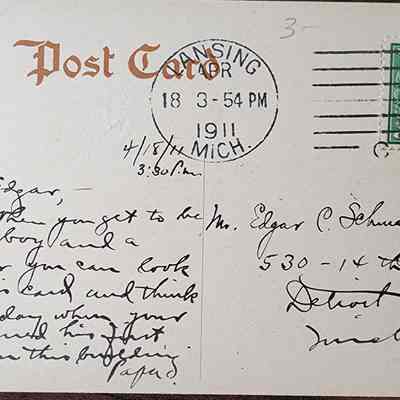 3-
Post Card
LANSING
APR
18 3-54 PM
1911
MICH.
4/18/11
3:30 P.m.
Edgar,-
when you get to be
boy and a
you can look
card and think
day when your
his first
this building
Papa.
Mr. Edgar C.
530-14 th
Detroit